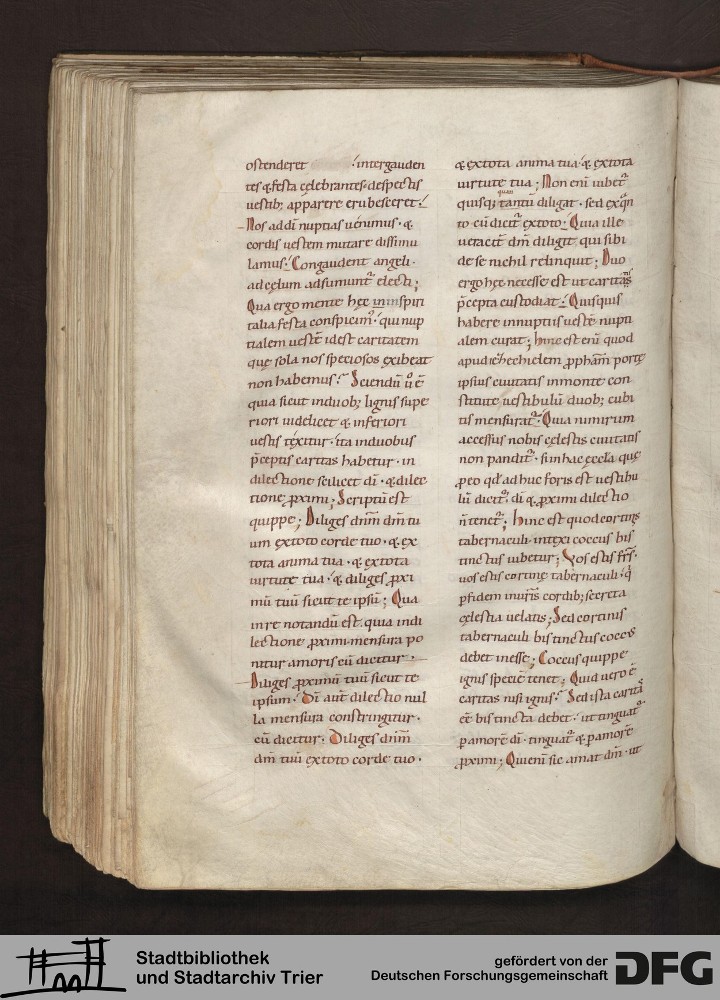 ostenderet ·' inter gauden
tes & festa celebrantes· despectis
uestib; apparere erubesceret·'
Nos ad dī nuptias uenimus· &
cordis uestem mutare dissimu
lamus·' Congaudent angeli·
ad cęlum adsumunt̄ electi;
Qua ergo mente hęc inuis spiri
talia festa conspicim᷒·' qui nup
tialem uestē idest caritatem
que sola nos speciosos exibeat
non habemus·' Sciendū u̇ ē
quia sicut induob; lignis supe
riori uidelicet & inferiori
uestis texitur· ita induobus
p̄ceptis caritas habetur· in
dilectione scilicet dī· & dilec
tione ꝓximi; Scriptū est
quippe; Diliges dn̄m dm̄ tu
um ex toto corde tuo· & ex
tota anima tua· & ex tota
uirtute tua· & diliges ꝓxi
mū tuū sicut te ipsū; Qua
in re notandū est quia in di
lectione ꝓximi mensura po
nitur amoris cū dicitur·
Diliges ꝓximū tuū sicut te
ipsum· Dī aut̄ dilectio nul
la mensura constringitur·
cū dicitur; Diliges dn̄m
dm̄ tuū ex toto corde tuo·
& ex tota anima tua· & ex tota
uirtute tua; Non enī iubet̄
quisq; quan tantū diligat· sed ex q̄n
to cū dicit̄ ex toto·' Quia ille
ueracit̄ dm̄ diligit qui sibi
de se nichil relinquit; Duo
ergo hęc necesse est ut caritatis
p̄cepta custodiat·' Quisquis
habere in nuptiis uestē nupti
alem curat; hinc est enī quod
apud iezechielem ꝓpham̄ portę
ipsius ciuitatis in monte con
stitutę uestibulū duob; cubi
tis mensurat̄·' Quia nimirum
accessus nobis cęlestis ciuitatis
non pandit̄· si in hac ęccla quę
ꝓ eo qd̄ adhuc foris est uestibu
lū dicit̄· dī & ꝓximi dilectio
n̄ tenet̄; hinc est quod cortinę
tabernaculi· intexi coccus bis
tinctus iubetur; Vos estis frs̄·
uos estis cortinę tabernaculi· q̇
p fidem in ur̄is cordib; secreta
cęlestia uelatis; Sed cortinis
tabernaculi bis tinctus coccus
debet inesse; Coccus quippe
ignis speciē tenet; Quid uero ē
caritas nisi ignis·' Sed ista carita
ē bis tincta debet·' ut tinguat̄
p amorē dī· tinguat̄ & p amorē
ꝓximi; Qui enī sic amat dm̄· ut
Stadtbibliothek
und Stadtarchiv Trier
gefördert von der
Deutschen Forschungsgemeinschaft
DFG